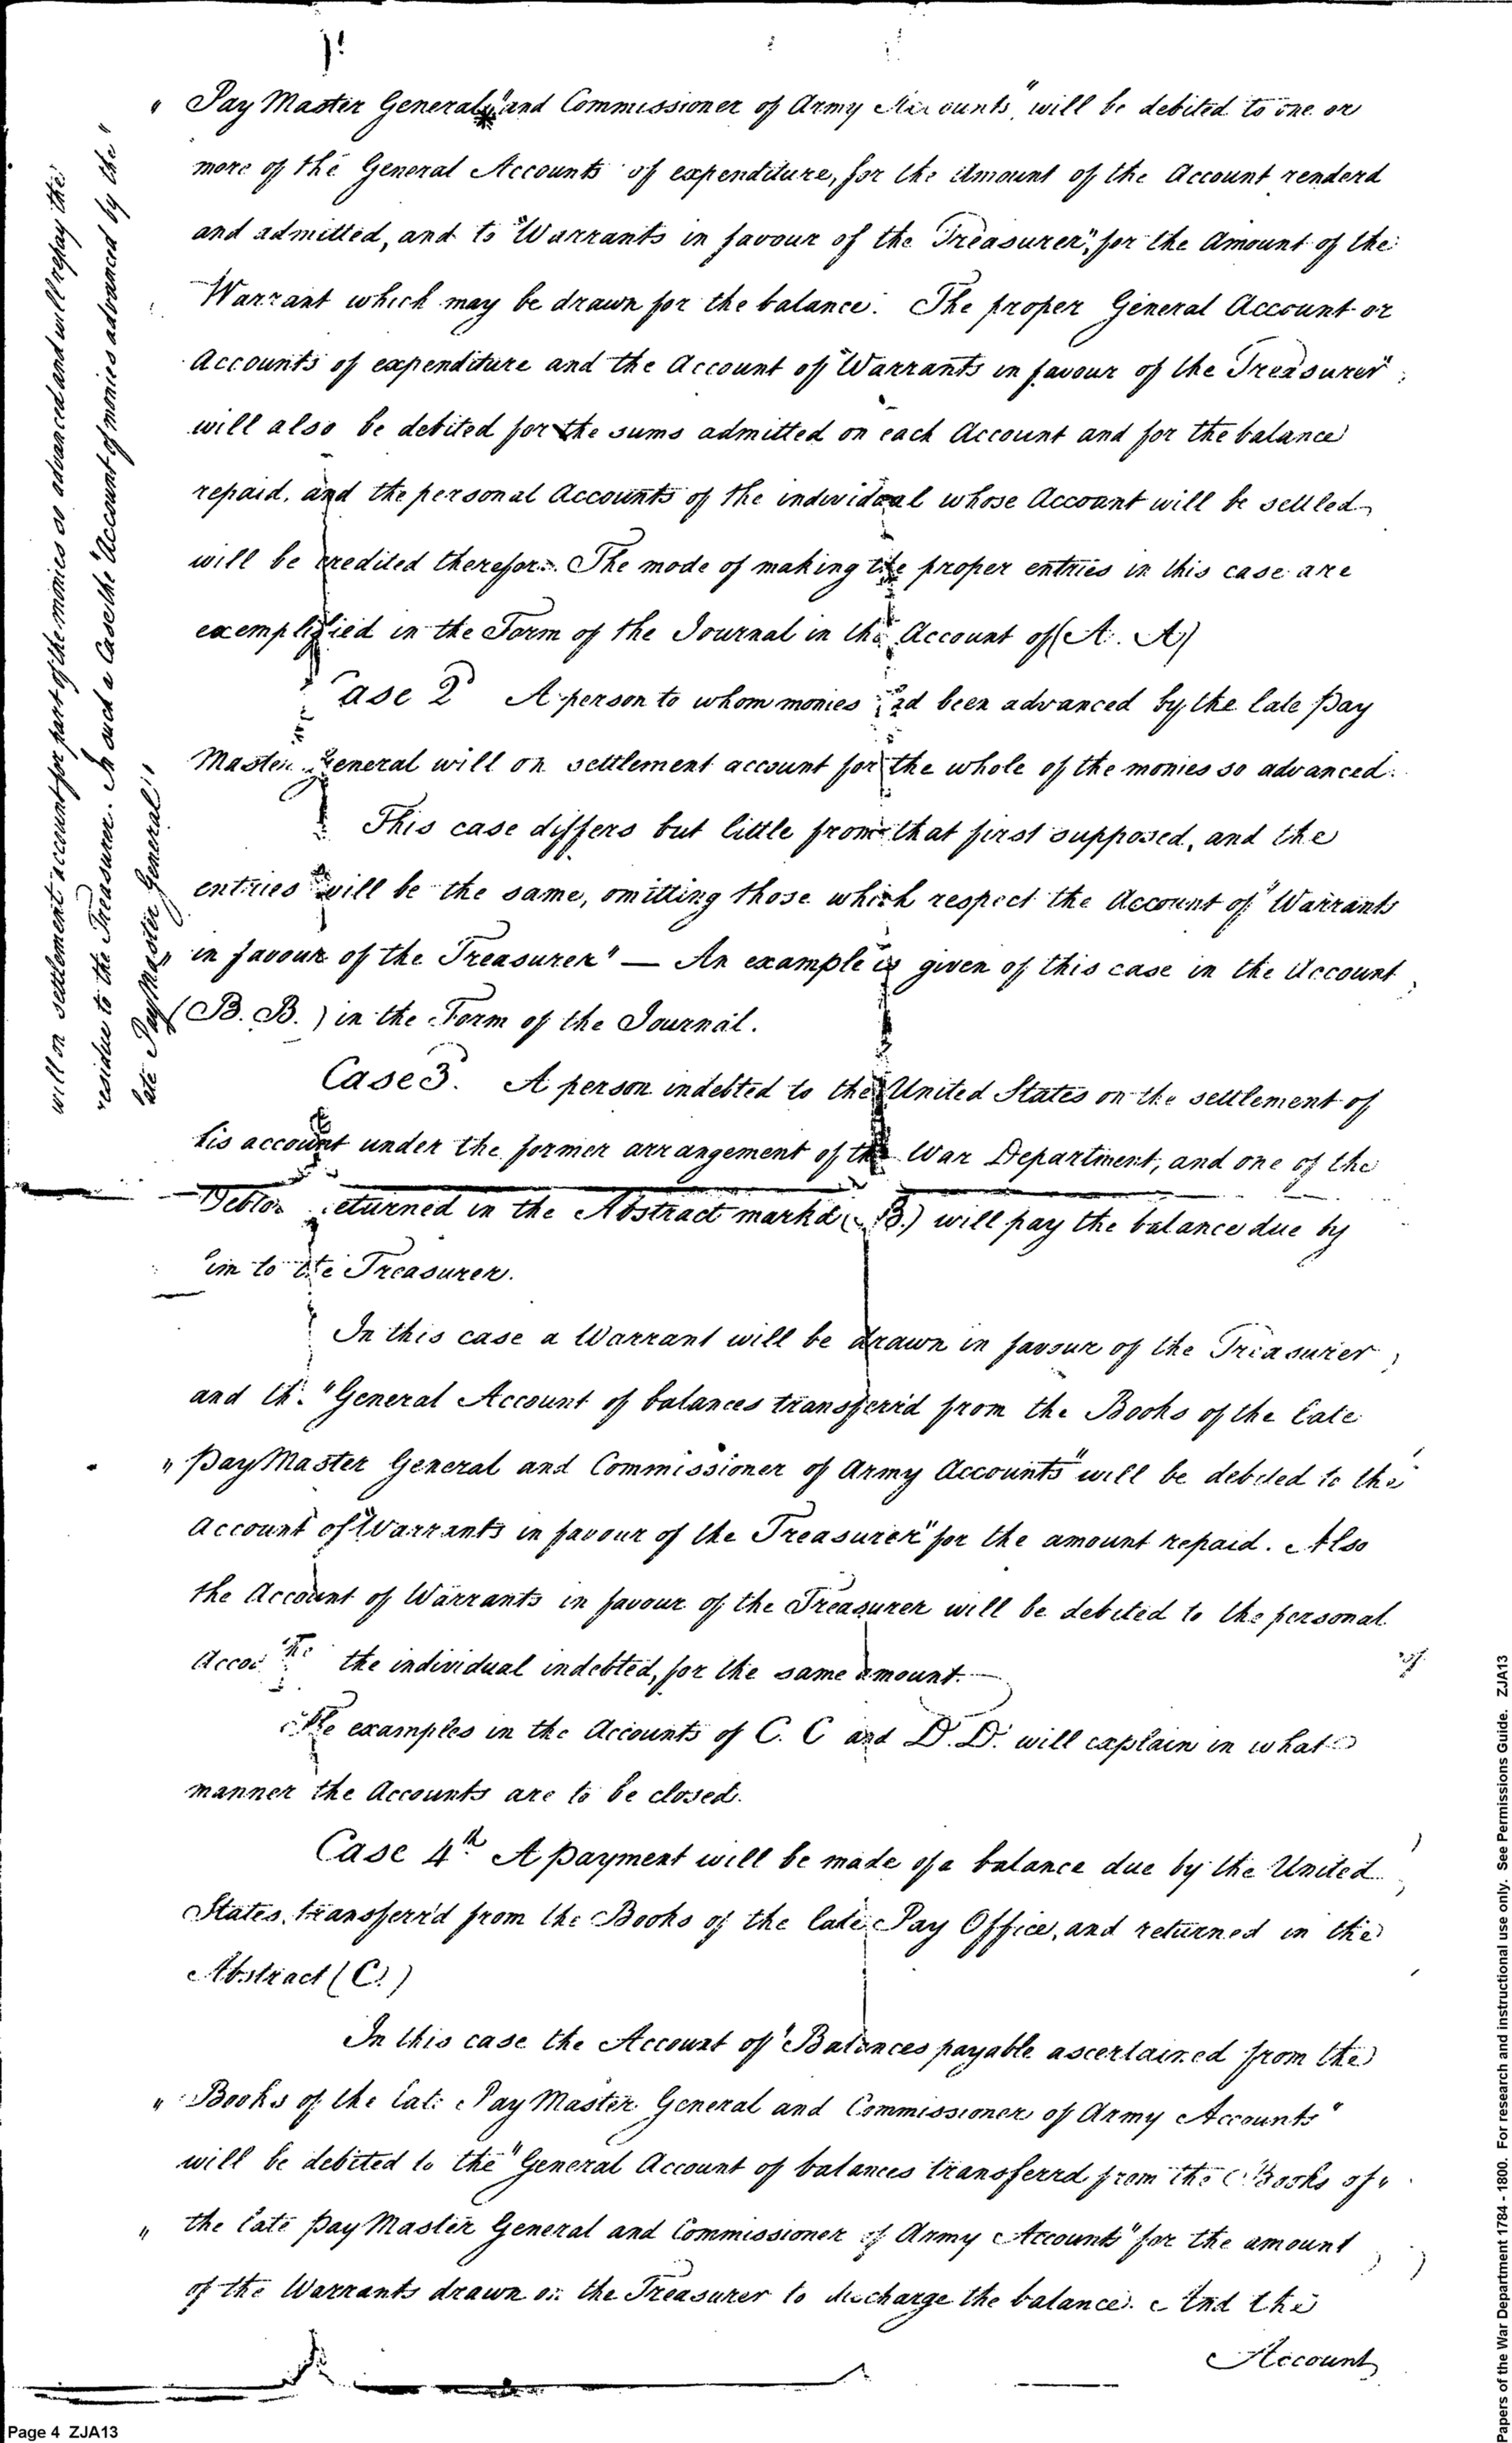 will on settlement account for part of the monies so advanced and will repay the
residue to the Treasurer. In such a Case the "Account of monies advanced by the "
late PayMaster General"
" Pay Master General" and Commissioner of Army Accounts", will be debited to one or
more of the General Accounts of expenditure, for the Amount of the Account renderd
and admitted, and to "Warrants in favour of the Treasurer", for the Amount of the
Warrant which may be drawn for the balance. The proper General Account or
Accounts of expenditure and the Account of "Warrants in favour of the Treasurer"
will also be debited for the sums admitted on each Account and for the balance
repaid, and the personal Accounts of the individual whose Account will be settled
will be credited therefor. The mode of making the proper entries in this case are
exemplified in the Form of the Journal in the Account of (A. A)
Case 2d A person to whom monies had been advanced by the late Pay
Master General will on settlement account for the whole of the monies so advanced.
This case differs but little from that first supposed, and the
entries will be the same, omitting those which respect the Account of "Warrants
" in favour of the Treasurer" — An example is given of this case in the Account
(B. B.) in the Form of the Journal.
Case 3. A person indebted to the United States on the settlement of
his account under the former arrangement of the War Department, and one of the
Debtors returned in the Abstract markd (B.) will pay the balance due by
him to the Treasurer.
In this case a Warrant will be drawn in favour of the Treasurer
and the "General Account of balances transferr'd from the Books of the late
" PayMaster General and Commissioner of Army Accounts" will be debited to the
Account of "Warrants in favour of the Treasurer" for the amount repaid. Also
the Account of Warrants in favour of the Treasurer will be debited to the personal
Account of the individual indebted, for the same amount.
The examples in the Accounts of C. C and D. D. will explain in what
manner the Accounts are to be closed.
Case 4th A payment will be made of a balance due by the United
States, transferr'd from the Books of the late Pay Office, and returned in the
Abstract (C.)
In this case the Account of "Balances payable ascertained from the
" Books of the late PayMaster General and Commissioner of Army Accounts"
will be debited to the "General Account of balances transferrd from the Books of "
" the late PayMaster General and Commissioner of Army Accounts" for the amount
of the Warrants drawn on the Treasurer to discharge the balance. And the
Account
Page 4 ZJA13
Papers of the War Department 1784 - 1800. For research and instructional use only. See Permissions Guide. ZJA13